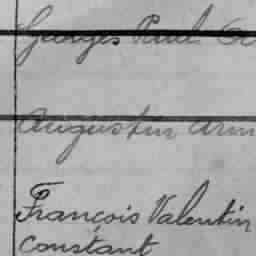 Georges Paul
Augustin
François Valentin
Constant